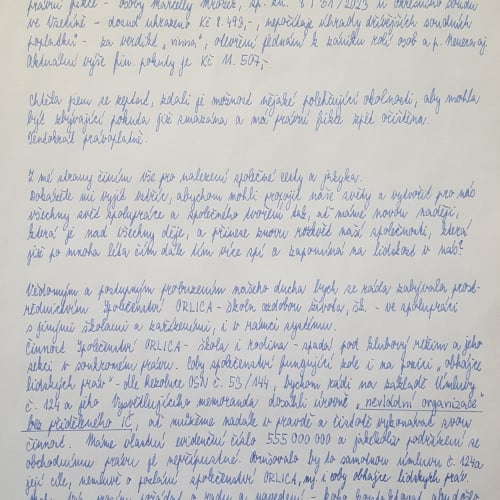 právní fikce - osoby Marcelly Mrózek, sp. zn. 8 T 31/2023 u Okresního soudu
ve Vsetíně - dosud uhrazeno Kč 8.493,-, nepočítaje úhrady dřívějších soudních
poplatků - za verdikt „vinna“, otevření jednání k zániku rolí osob a p.
Aktuální výše fin. pokuty je Kč 11.507,-.
Chtěla jsem se zeptat, zdali je možnost nějaké polehčující okolnosti, aby mohla
být zbývající pokuta již smazána a má právní fikce zpět očištěna.
Tentokrát pravoplatně.
Z mé strany činím vše pro nalezení společné cesty a jazyka.
Dokážete mi vyjít vstříc, abychom mohli propojit naše světy a vytvořit pro nás
všechny svět spolupráce a společného tvoření tak, ať máme novou naději,
která je nad všechny děje, a přinese znovu rozkvět naší společnosti, která
již po mnoha léta čím dále tím více spí a zapomíná na lidskost v nás?
Vědomým a postupným probouzením našeho ducha bych se ráda zabývala prost-
řednictvím Společenství ORLICA - škola ozdobou života, - ve spolupráci
s jinými školami a zařízeními, i v rámci systému.
Činnost Společenství ORLICA - škola i rodina - spadá pod klubový režim a jeho
sekci v soukromém právu. Coby společenství fungující zde i na pozici „obhájce
lidských práv“ - dle Rezoluce OSN č. 53/144, bychom rádi na základě Úmluvy
č. 124 a jeho Vysvětlujícího memoranda dosáhli úrovně „nevládní organizace
bez přiděleného IČ, ať můžeme nadále v pravdě a čistotě vykonávat svou
činnost. Máme vlastní evidenční číslo 555 000 000 a jakékoliv podřízení se
obchodnímu právu je nepřípustné. Narušovalo by to samotnou úmluvu č. 124 a
její cíle, nemluvě o poslání společenství ORLICA, mj. i coby obhájce lidských práv.